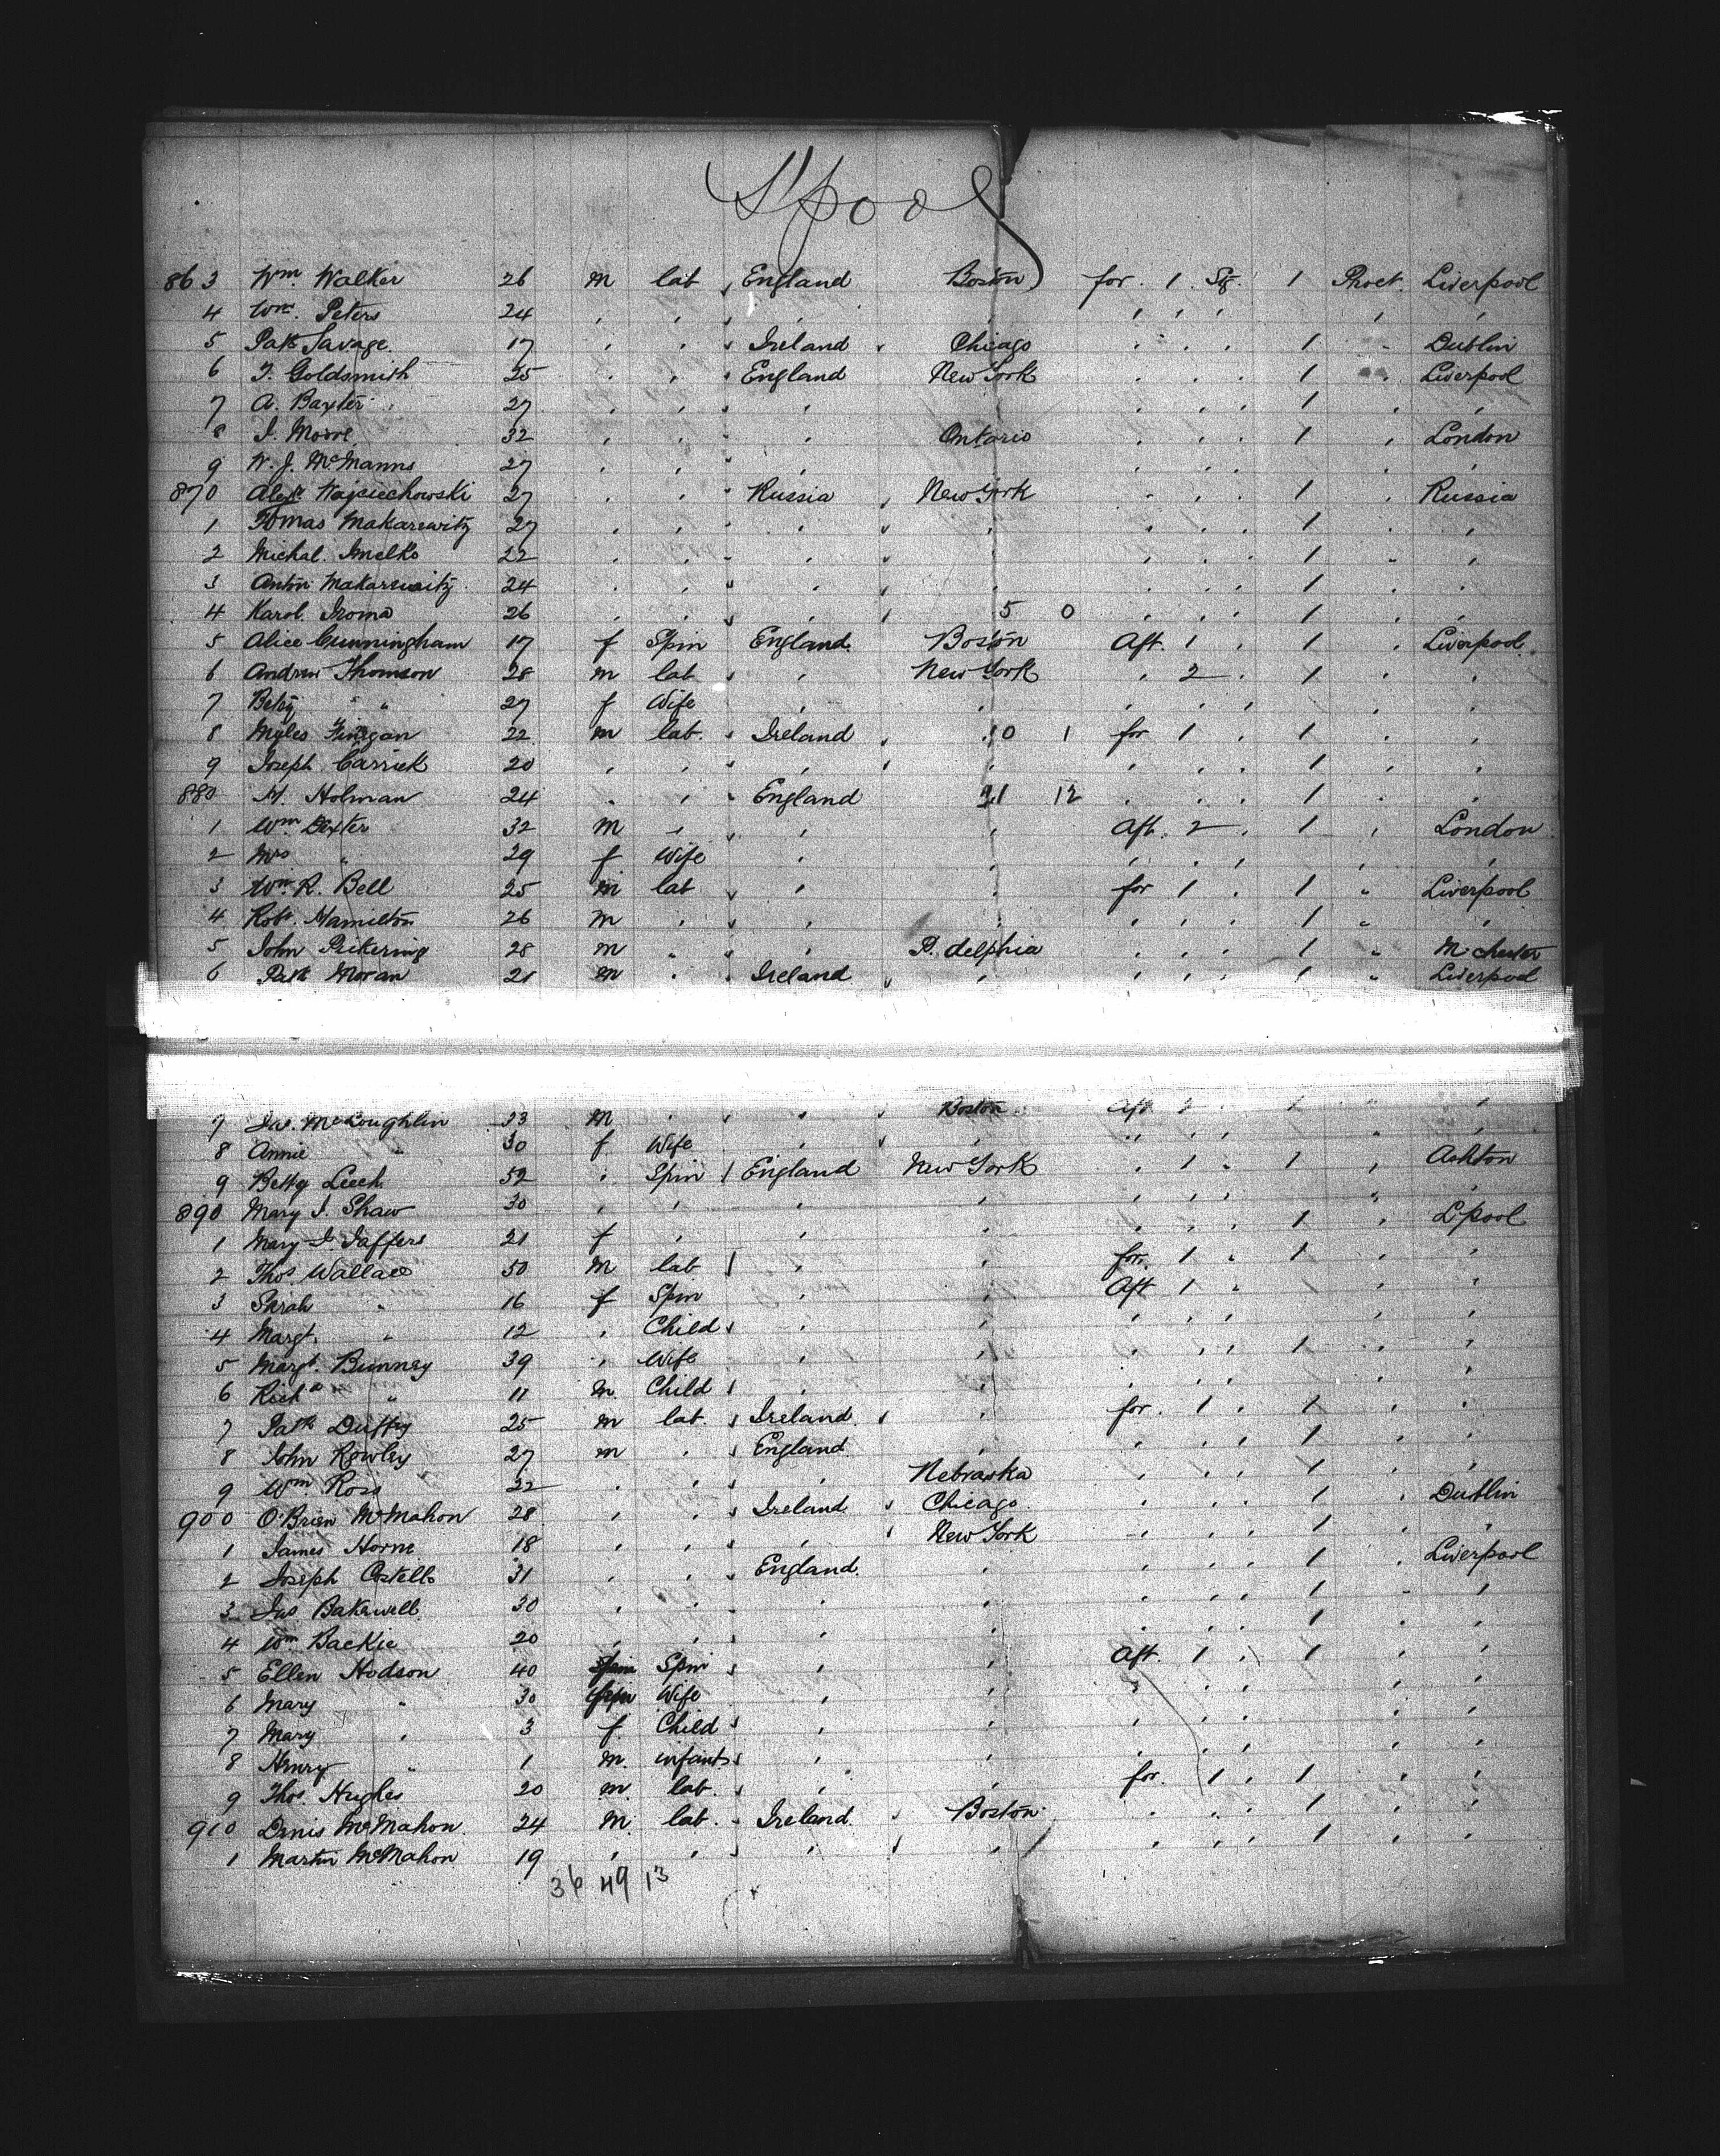 L'pool
863 Wm Walker 26 m lab England Boston for. 1 Stg. 1 Proct. Liverpool
4 Wm. Peters 24 " " " " " " " " " "
5 Patk Savage 17 " " Ireland Chicago " " " 1 " Dublin
6 T. Goldsmith 25 " " England New York " " " 1 " Liverpool
7 A. Baxter 27 " " " " " " 1 " "
8 J. Moore 32 " " " Ontario " " " 1 " London
9 W. J. McManns 27 " " " " " " " "
870 Alex. Wojciechowski 27 " " Russia New York " " " 1 " Russia
1 Tomas Makarewitz 27 " " " " " " " 1 " "
2 Michal. Smelko 22 " " " " " " " 1 " "
3 Anton Makarewitz 24 " " " " " " " 1 " "
4 Karol. 26 " " " 5 0 " " " 1 " "
5 Alice Cunningham 17 f Spin England. Boston Aft. 1 " 1 " Liverpool.
6 Andrew Thomson 28 m lab " New York " 2 " 1 " "
7 Betsy " 27 f Wife " " " " " " "
8 Myles Finegan 22 m lab. Ireland 10 1 for 1 " 1 " "
9 Joseph Carrick 20 " " " " " " " 1 " "
880 H. Holman 24 " " England 21 12 " " " 1 " "
1 Wm Dexter 32 M " " " Aft. 2 " 1 " London
2 Mrs " 29 f Wife " " " " " " "
3 Wm R. Bell 25 m lab " " for 1 " 1 " Liverpool
4 Robt. Hamilton 26 m " " " " " " 1 " "
5 John Pickering 28 m " " P. delphia " " " 1 " M. chester
6 Patk Moran 21 m " Ireland " " " " 1 " Liverpool
7 Jas. McLoughlin 33 M " " Boston Aft 2 " 1 " "
8 Annie " 30 f Wife " " " " " " "
9 Betty Leech 52 " Spin England New York " 1 " 1 " Ashton
890 Mary J. Shaw 30 " " " " " " " " "
1 Mary J. Jaffers 21 f " " " " " " 1 " L'pool
2 Thos. Wallace 50 M lab " " for. 1 " 1 " "
3 Sarah " 16 f Spin " " Aft 1 " 1 " "
4 Margt. " 12 " Child " " " " " " "
5 Margt. Bunney 39 " Wife " " " " " 1 " "
6 Richd " 11 m. Child " " " " " " "
7 Patk Duffy 25 m lab. Ireland " for. 1 " 1 " "
8 John Rowley 27 m " England " " " " 1 " "
9 Wm Ross 22 " " " Nebraska " " " 1 " "
900 O'Brien McMahon 28 " " Ireland Chicago " " " 1 " Dublin
1 James Horne 18 " " " New York " " " 1 " "
2 Joseph Costello 31 " " England. " " " " 1 " Liverpool
3 Jas Bakewell 30 " " " " " " " 1 " "
4 Wm Backie 20 " " " " " " " 1 " "
5 Ellen Hodson 40 Spin " " Aft. 1 " 1 " "
6 Mary " 30 Wife " " " " " " "
7 Mary " 3 f Child " " " " " " "
8 Henry " 1 m. infant " " " " " " "
9 Thos. Hughes 20 m lab. " " for. 1 " 1 " "
910 Denis McMahon 24 M lab. Ireland. Boston. " " " 1 " "
1 Martin McMahon 19 " " " " " " " 1 " "
36 49 13